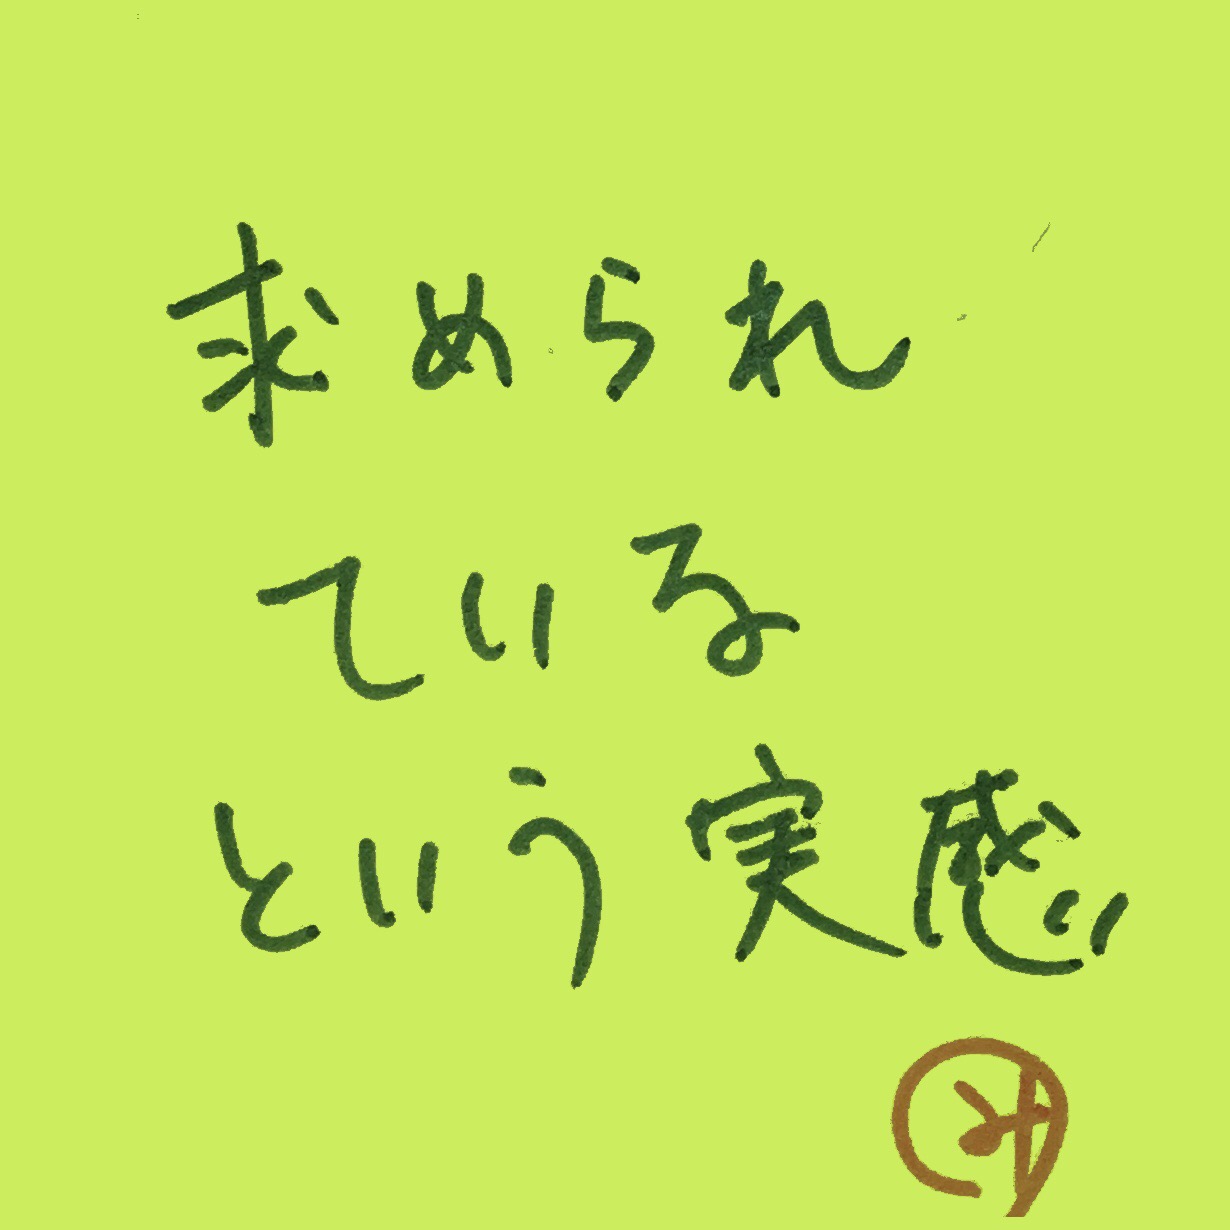 求められ
ている
という実感